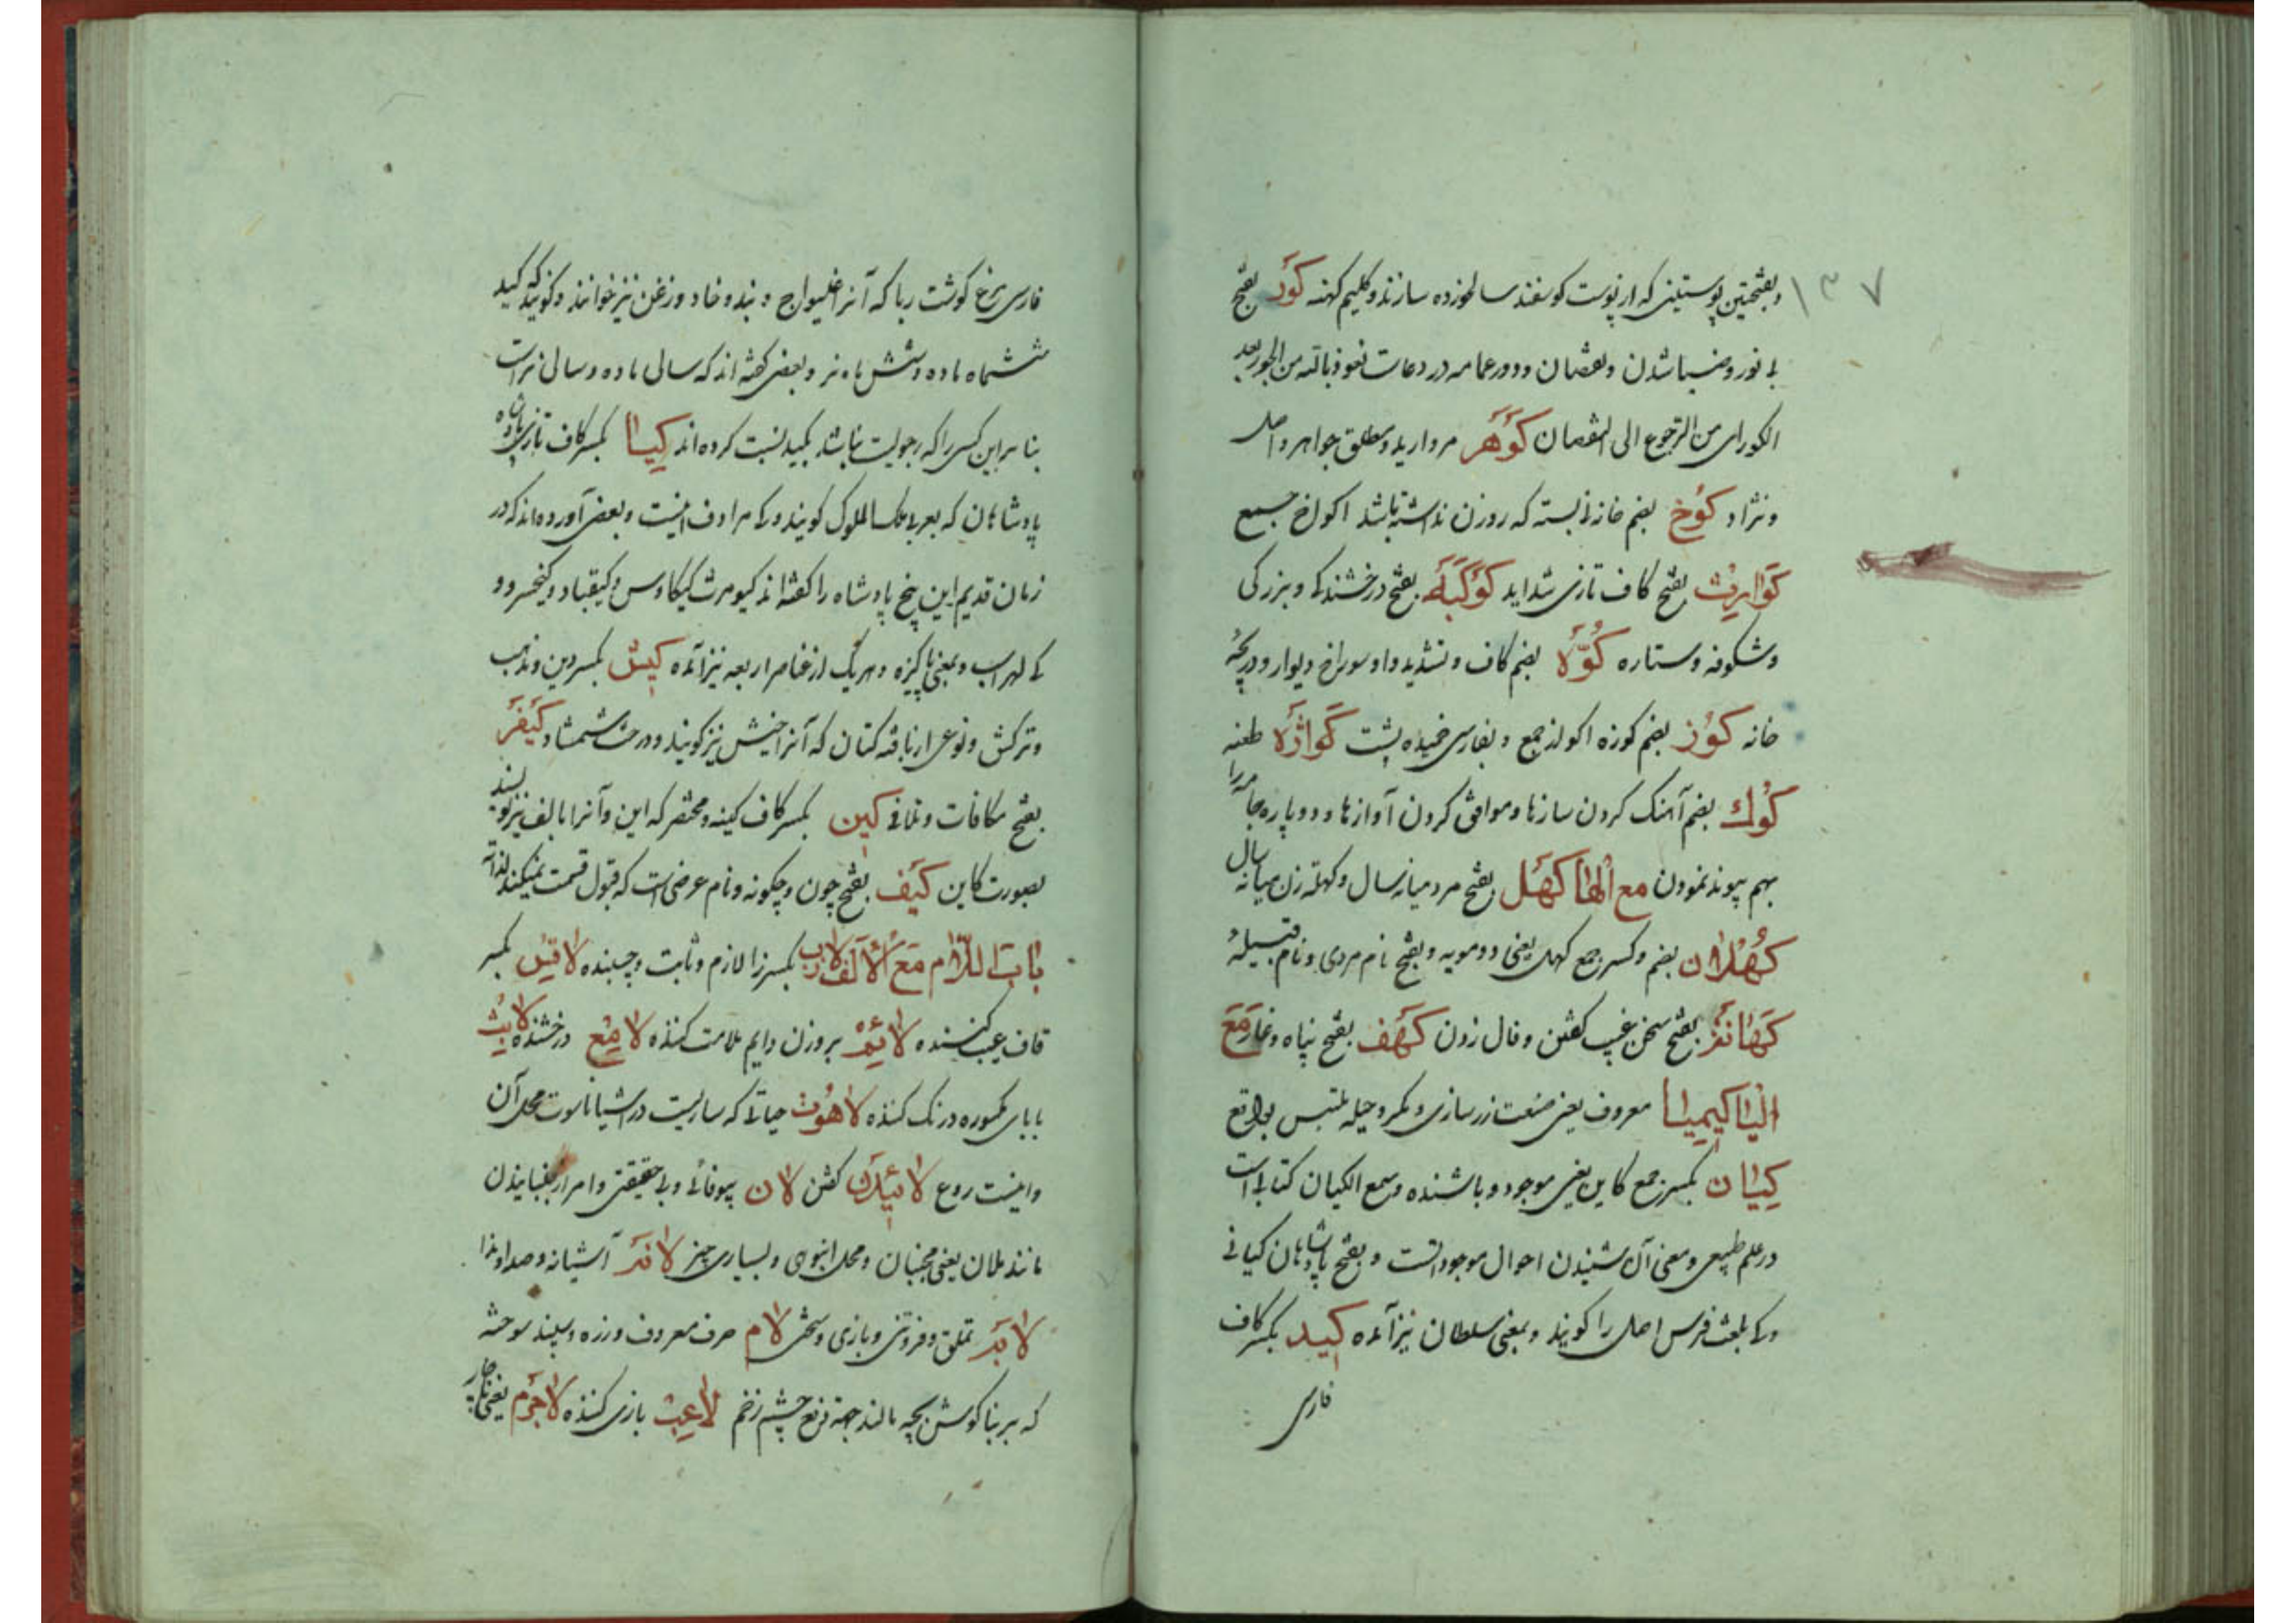 ۱۳۷
وبفتحتین پوستینی که از پوست کوسفند سالخورده سازند و کلیم کهنه کَوْر بفتح
بی نور و ضیا شدن و نقصان و دور عمامه در دعاست نعوذ بالله من الحور بعد
الکور ای من الرجوع الی النقصان کَوْهَر مروارید و مطلق جواهر و اصل
و نژاد کُوخ بضم خانه نی بسته که روزن نداشته باشد اکواخ جمع
کَوارِث بفتح کاف تازی شداید کَوْکَبَه بفتح درخشندکی و بزرکی
و شکوفه و ستاره کُوَّه بضم کاف و تشدید واو سوراخ دیوار و دریچه
خانه کُوز بضم کوزه اکواز جمع و بفارسی خمیده پشت کَواژَه طعنه
کُوك بضم آهنک کردن سازها و موافق کردن آوازها و دو پاره جامه را
بهم پیوند نمودن مع الها کَهْل بفتح مرد میانه سال و کهله زن میانه سال
کُهْلان بضم و کسر جمع کهل یعنی دو مویه و بفتح نام مردی و نام قبیله
کَهانَة بفتح سخن غیب کفتن و فال زدن کَهْف بفتح پناه و غار مَعَ
الیا کیمیا معروف یعنی صنعت زر سازی و مکر و حیله ملتبس بواقع
کِیان بکسر جمع کاین یعنی موجود و باشنده و سمع الکیان کتابی است
در علم طبیعی و معنی آن شنیدن احوال موجوداتست و بفتح پادشاهان کیانی
و کی بلغت فرس اصل را کویند و بمعنی سلطان نیز آمده کید بکسر کاف
فارسی
فارسی مرغ کوشت ربا که آنرا غلیواج و بند و خاد و زغن نیز خوانند و کویند که کید
ششماه ماده و شش ماه نر و بعضی کفته اند که سالی ماده و سالی نر است
بنا بر این کسی را که رجولیت نباشد بکید نسبت کرده اند کِیا بکسر کاف تازی پادشاه
پادشاهان که بعربی ملک الملوک کویند و کی مرادف اینست و بعضی آورده اند که در
زمان قدیم این پنج پادشاه را کفته اند کیومرث کیکاوس و کیقباد و کیخسرو و
کی لهراسب و بمعنی پاکیزه و هر یک از عناصر اربعه نیز آمده کیش بکسر دین و مذهب
و ترکش و نوعی از بافته کتان که آنرا خیش نیز کویند و درخت شمشاد کَیْفَر
بفتح مکافات و تلافی کین بکسر کاف کینه و مختصر که این و آنرا با الف نیز نویسند
بصورت کاین کَیْف بفتح چون و چکونه و نام عرضی است که قبول قسمت نمیکند لذاته
باب اللام مَعَ الاَلِف لازب بکسر زا لازم و ثابت و چسبنده لاقِس بکسر
قاف عیب کننده لائِم بروزن دایم ملامت کننده لامِع درخشنده لابِث
بابای مکسوره درنک کننده لاهُوت حیاتی که ساریست در اشیا ناسوت محل آن
و اینست روع لائیدن کفتن لان بیوفائی و بی حقیقتی و امر از جنبانیدن
مانند ملان یعنی مجنبان و محل انبوهی و بسیاری چیز لانَه آشیانه و صدا و ندا
لابَه تملق و فروتنی و بازی و سخن لام حرف معروف و زره و سپند سوخته
که بر بناکوش بچه مالند جهة دفع چشم زخم لاعِب بازی کننده لاجَرَم یعنی ناچار